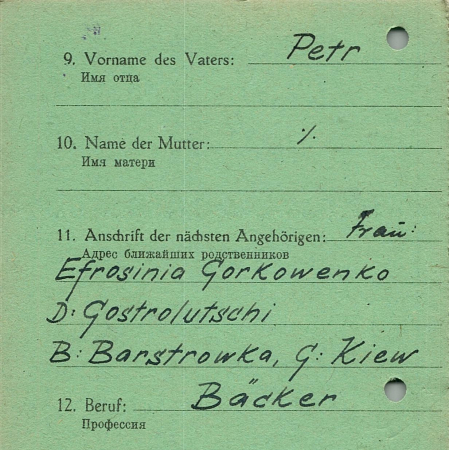 9. Vorname des Vaters: Petr
Имя отца
10. Name der Mutter: ٪
Имя матери
11. Anschrift der nächsten Angehörigen: Frau:
Адрес ближайших родственников
Efrosinia Gorkowenko
D: Gostrolutschi
B: Barstrowka, G: Kiew
12. Beruf: Bäcker
Профессия